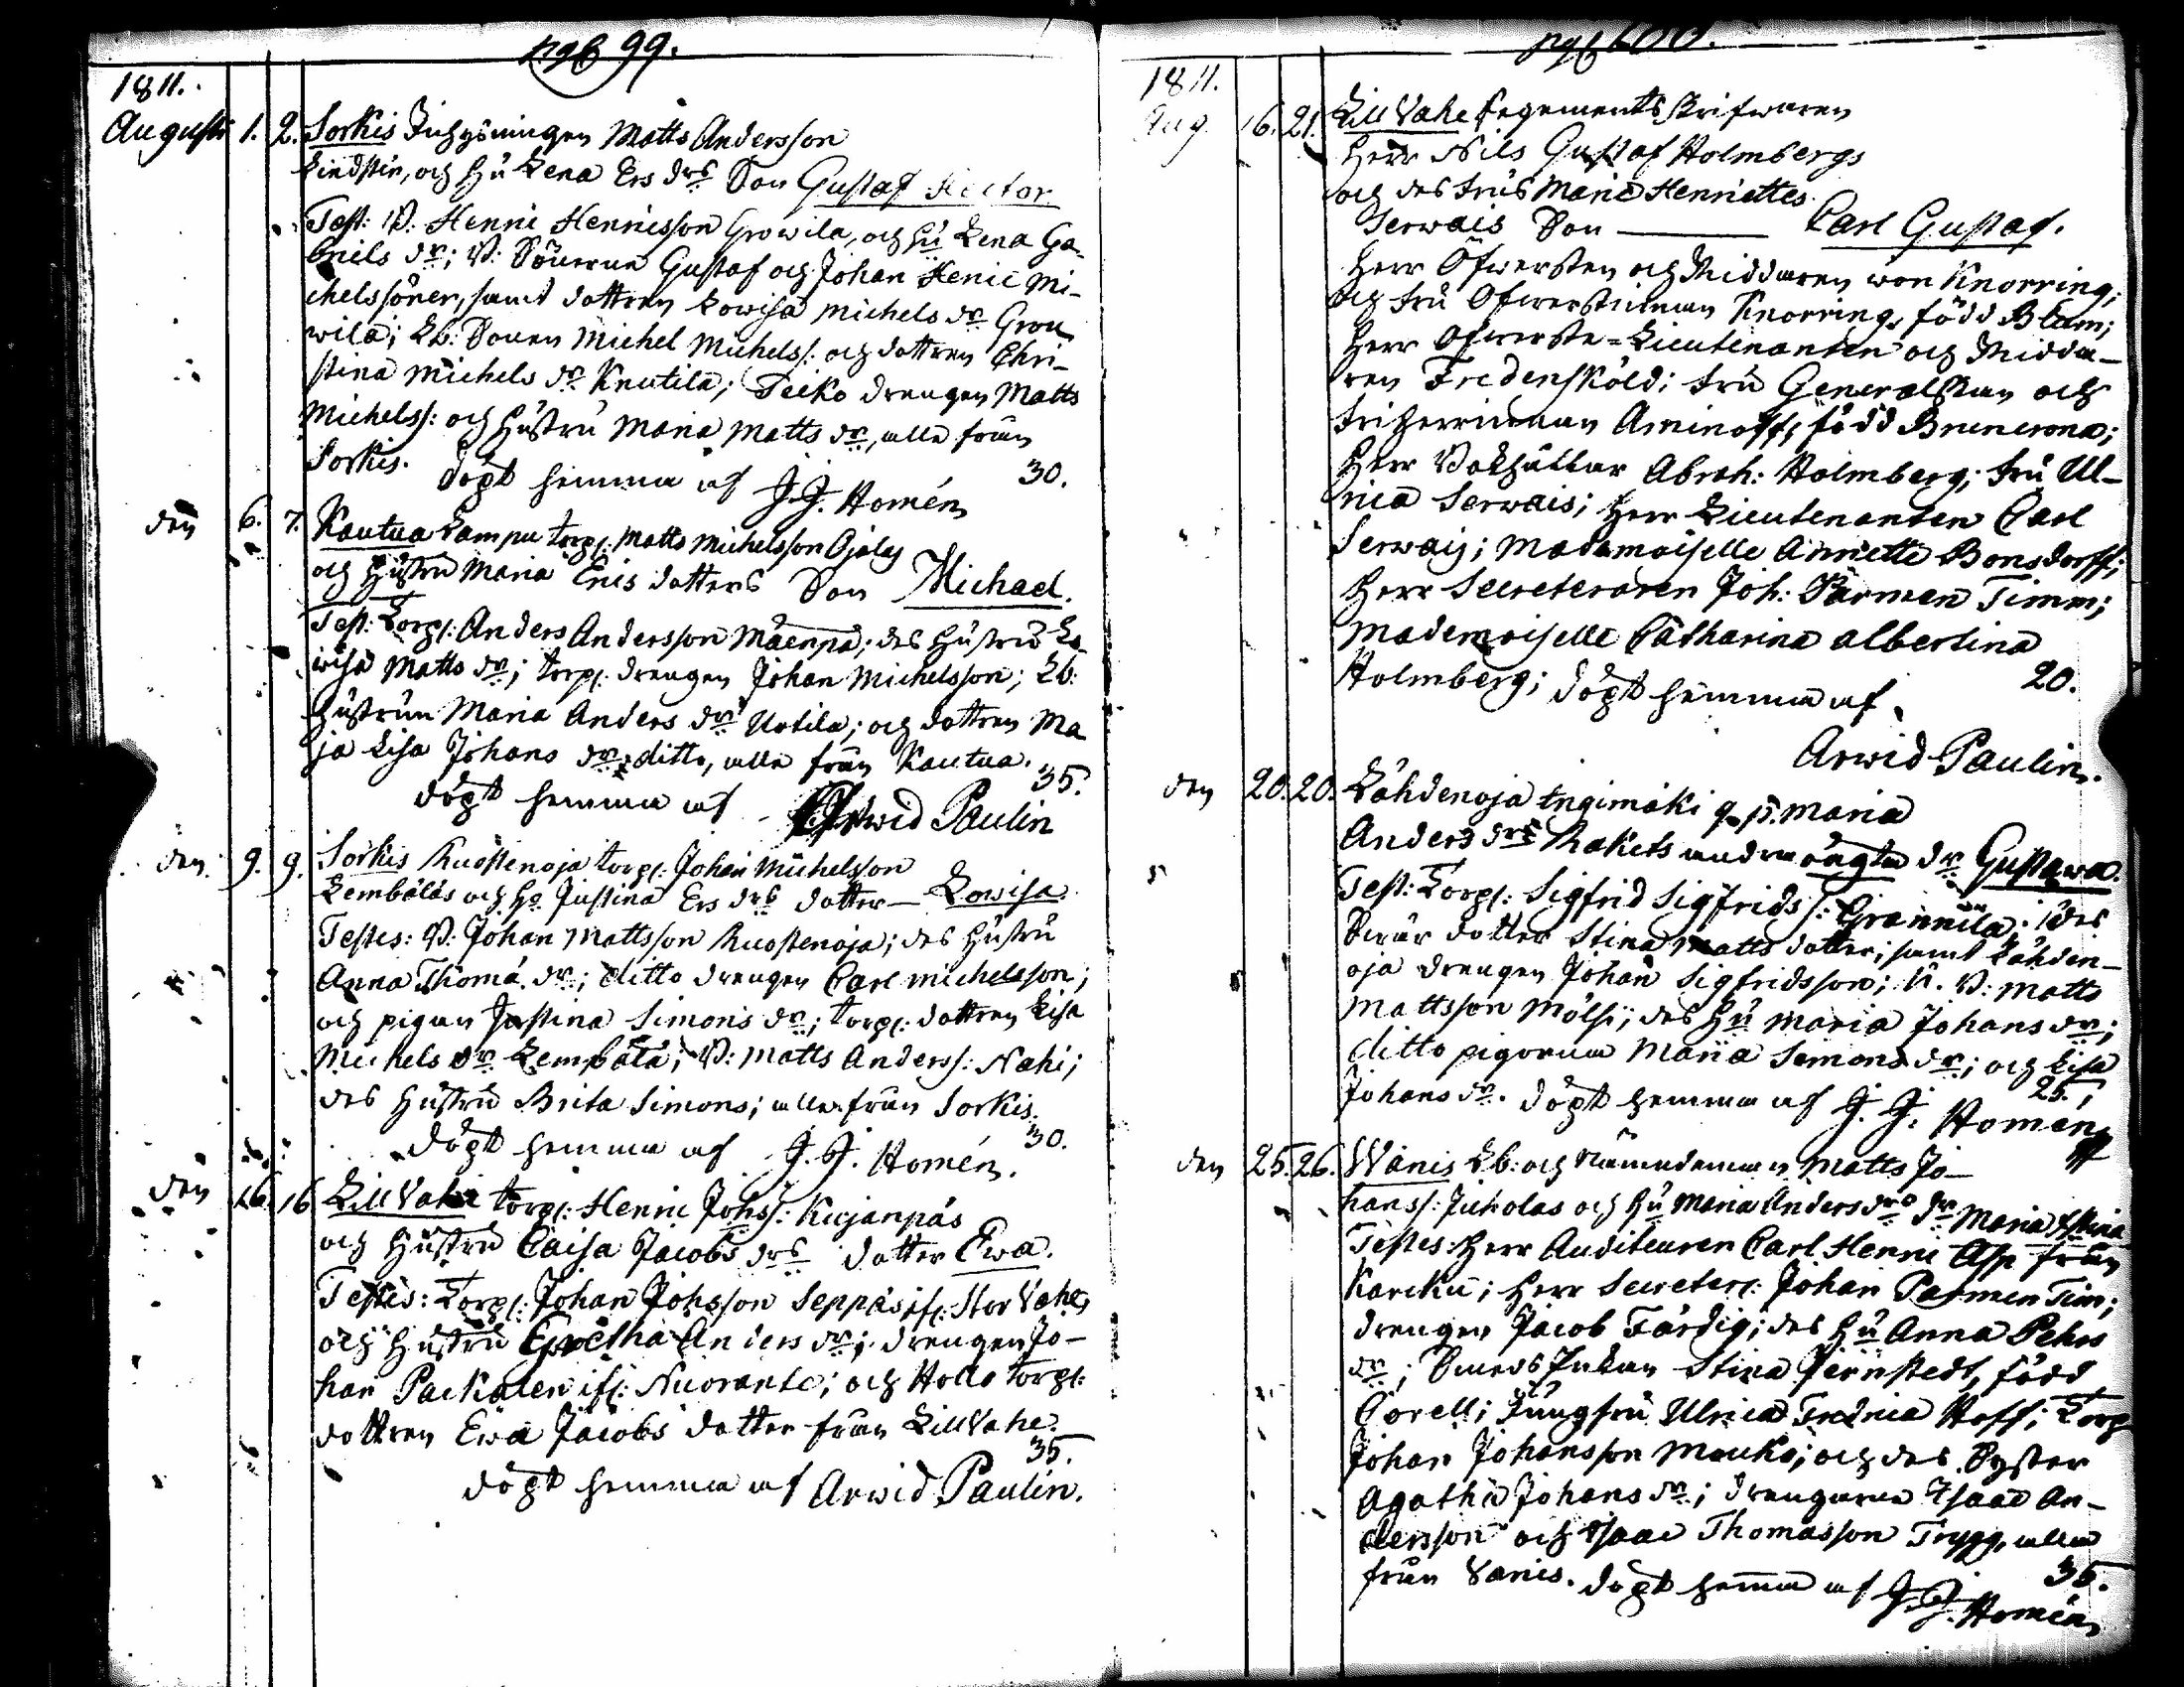 pag 99.
1811.
Augusti 1. 2. Sorkis Inhysningen Matts Andersson
Lindsten, och Hu Lena Ers drs Son Gustaf Hector
Test: B: Henric Henricsson Growila, och hu Lena Ga-
briels dr; B: Sönerna Gustaf och Johan Henric Mi-
chelssöner, samt dottren Lowisa Michels dr Grou
wila; Lb: Sonen Michel Michelss: och dottren Chri-
stina Michels dr Knutila; Teiko drengen Matts
Michelss: och Hustru Maria Matts dr, alla från
Sorkis. döpt hemma af J. J. Homén 30.
den 6. 7. Kautua Lampu torp: Matts Michelsson Ojalas
och Hustru Maria Erics dotters Son Michael.
Test: Torp: Anders Andersson Mäenpä; des Hustru Lo-
wisa Matts dr; torp: drengen Johan Michelsson; Lb:
Hustrun Maria Anders dr Uotila; och dottren Ma
ja Lisa Johans dr ditto, alla från Kautua.
35.
döpt hemma af Arwid Paulin
den 9. 9. Sorkis Ruostenoja torp: Johan Michelsson
Lembäläs och ho Justina Ers drs dotter — Lowisa.
Testes: B: Johan Mattsson Ruostenoja; des Hustru
Anna Thomæ dr; ditto drengen Carl Michelsson;
och pigan Justina Simons dr; torp: dottren Lisa
Michels dr Lembälä; B: Matts Anderss: Nahi;
des Hustru Brita Simons; alla från Sorkis.
döpt hemma af J. J. Homén. 30.
den 16. 16 Lill Vahe torp: Henric Johss: Kujanpäs
och Hustru Caisa Jacobs drs dotter Ewa.
Testes: Torp: Johan Johsson Seppäs ifr: Stor Vahe,
och Hustru Gretha Anders dr; drengen Jo-
han Packalen ifr: Nuorante; och Hollo torp:
dottren Ewa Jacobs dotter från Lill Vahe.
35.
döpt hemma af Arwid Paulin.
pag 100.
1811.
Aug. 16. 21. Lill Vahe Regements Skrifwaren
Herr Nils Gustaf Holmbergs
och des fru Marie Henriettes
Serwais Son — Carl Gustaf.
Herr Öfwersten och Riddaren von Knorring,
och fru Öfwerstinnan Knorring, född Blum;
Herr Öfwerste-Lieutenanten och Ridda-
ren Fredensköld; fru Generalskan och
friherrinnan Aminoff, född Brunerona;
Herr Bokhållar Abrah: Holmberg; fru Ul-
rica Serwais; Herr Lieutenanten Carl
Serwais; Mademoiselle Annette Bonsdorff;
Herr Secreteraren Joh: Parmen Timm;
Mademoiselle Catharina Albertina
Holmberg; döpt hemma af 20.
Arwid Paulin.
den 20. 20. Lähdenoja Ingimäki q.p. Maria
Anders drs Rakets andra oägta dr Gustawa.
Test: Torp: Sigfrid Sigfridss: Grannila; des
Swär dotter Stina Matts dotter; samt Lähden-
oja drengen Johan Sigfridsson; N. B: Matts
Mattsson Mölsi; des Hu Maria Johans dr;
ditto pigorna Maria Semons dr; och Lisa
Johans dr. döpt hemma af J. J. Homén 25.
den 25. 26. Wänis Lb: och Nämndeman Matts Jo-
hanss: Juckolas och Hu Maria Anders drs dr Maria Stina
Testes: Herr Auditeuren Carl Henric Asp från
Karcku; Herr Secreter: Johan Parmen Tim;
drengen Jacob Färdig; des Hu Anna Pehrs
dr; Smeds Enkan Stina Jernstedt, född
Corell; Jungfru Ulrica Fredrica Hoff; Torp
Johan Johansson Mauko; och des Syster
Agatha Johans dr; drengarna Isaac An-
dersson och Isaac Thomasson Trygg, alla
från Vänis. döpt hemma af J. J. Homén 35.